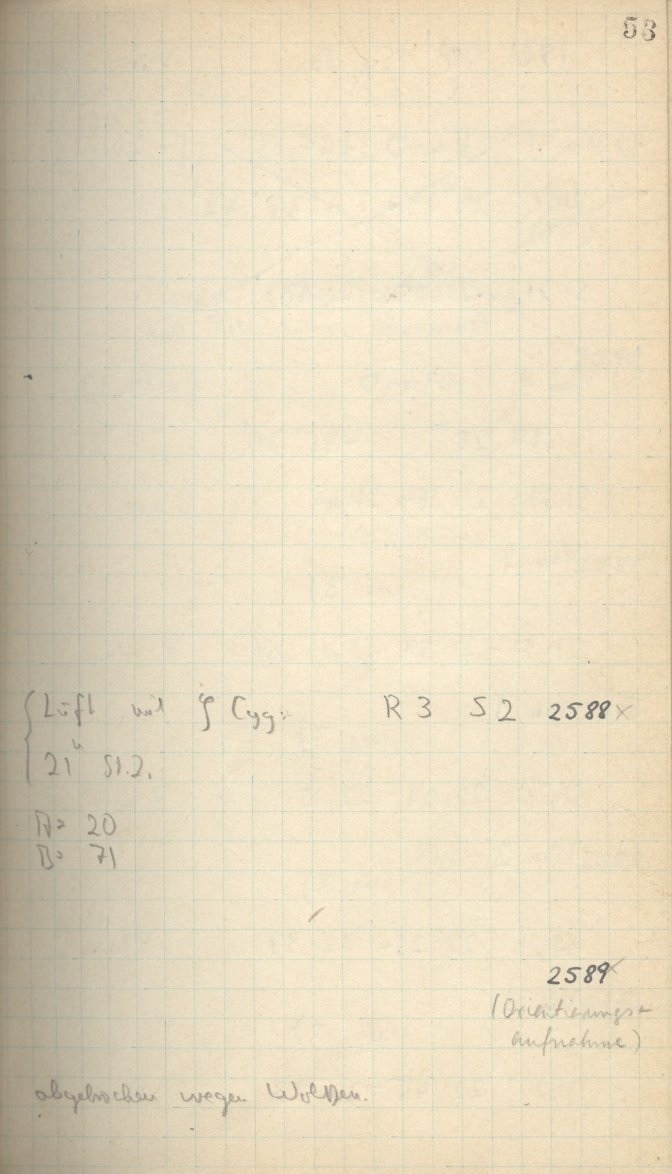 53
Luft mit ζ Cyg: R 3 S 2 2588 ×
21h 51.2.
A= 20
B= 71
2589 ×
(Orientierungs=
aufnahme)
abgebrochen wegen Wolken.